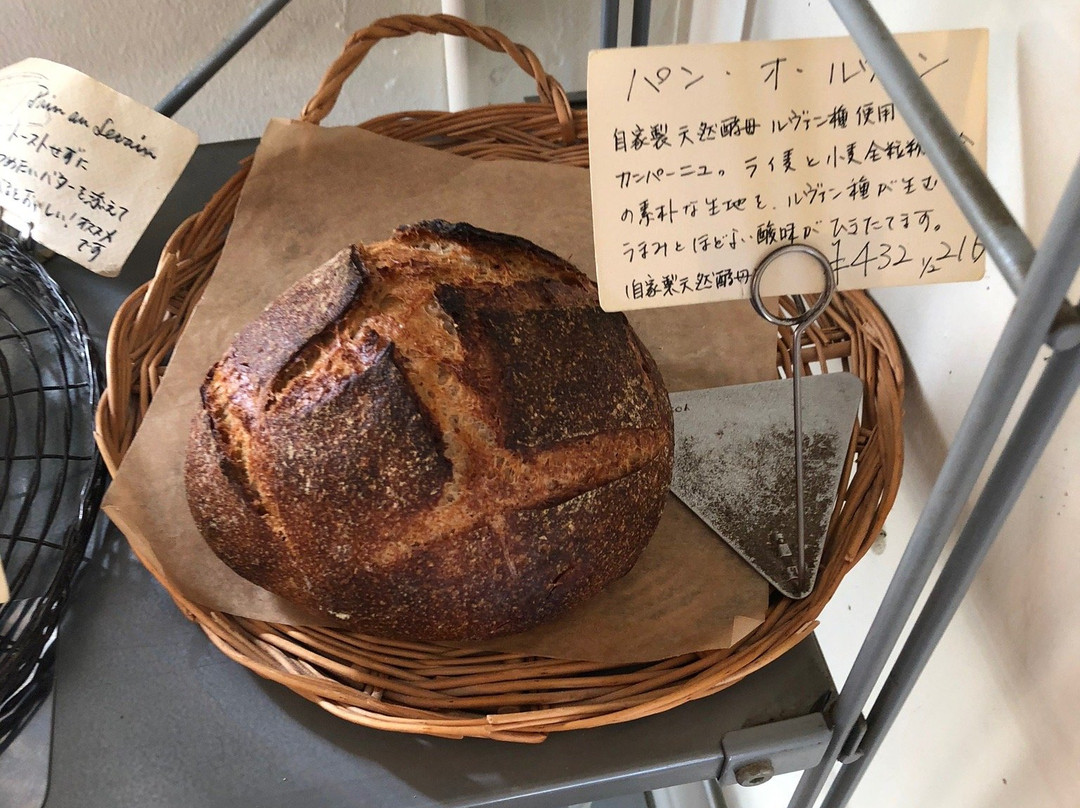 Pain au Levain
トーストせずに
つめたいバターを添えて
るとおいしい！オススメ
です
パン・オ・ルヴァン
自家製天然酵母 ルヴァン種使用
カンパーニュ。ライ麦と小麦全粒粉
の素朴な生地を、ルヴァン種が生む
うまみとほどよい酸味がひきたてます。
(自家製天然酵母
¥432 1/2 216